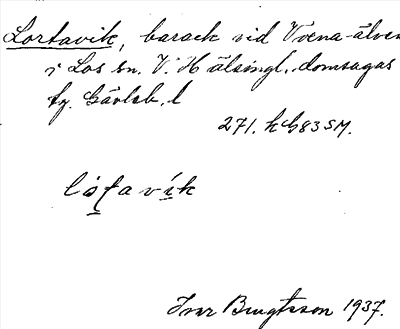 Lortavik, barack vid Voxna-älven
i Los sn. V. Hälsingl. domsagas
tg. Gävleb. l
271. kG83SM.
lo̱ṭavi̱k
Ivar Bengtsson 1937.